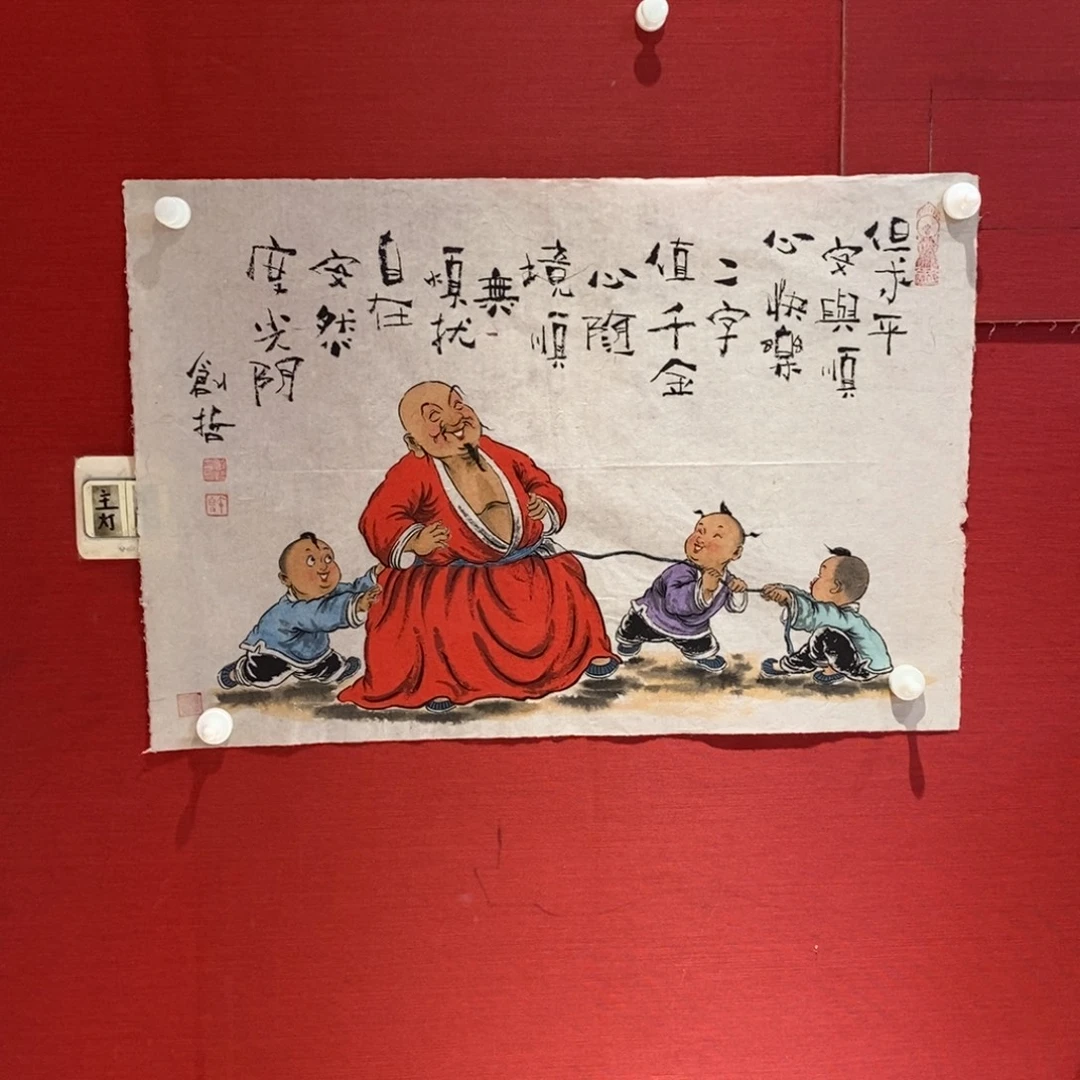 但求平
安與順
心快樂
二字
值千金
心隨
境順
無
煩扰
自在
安然
度光阴
創哲
主灯